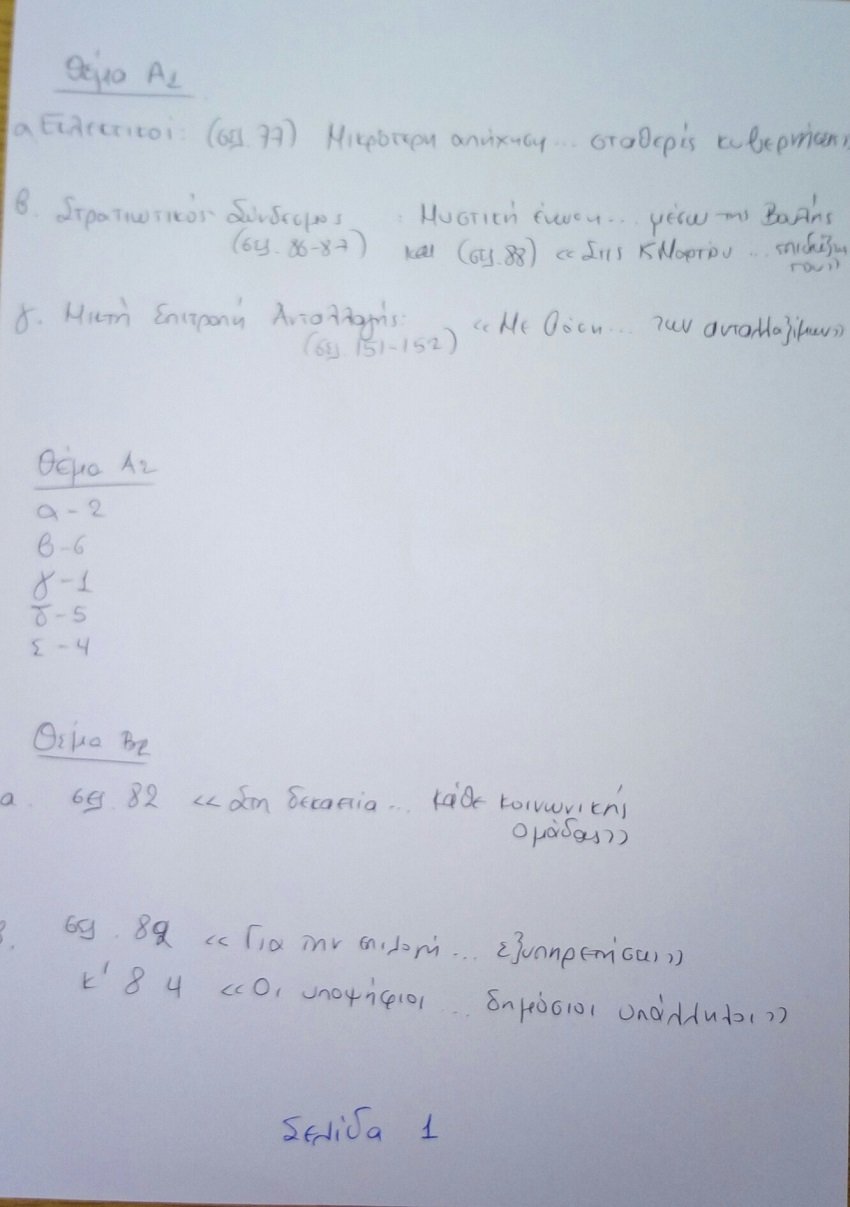 Θέμα Α1
α Εκλεκτικοί: (σελ. 77) Μικρότερη απήχηση... σταθερές κυβερνήσεις»
β. Στρατιωτικός Σύνδεσμος : Μυστική ένωση... μέσω της Βουλής
(σελ. 86-87) και (σελ. 88) «Στις Μαρτίου ... επιδιώξεις
του»
γ. Μικτή Επιτροπή Ανταλλαγής: «Με βάση... των ανταλλαξίμων»
(σελ. 151-152)
Θέμα Α2
α - 2
β - 6
γ - 1
δ - 5
ε - 4
Θέμα Β2
α. σελ. 82 «Στη δεκαετία... κάθε κοινωνικής
ομάδας»
β. σελ. 82 «Για την επιλογή... εξυπηρετήσει»
κ' 84 «Οι υποψήφιοι ... δημόσιοι υπάλληλοι»
Σελίδα 1